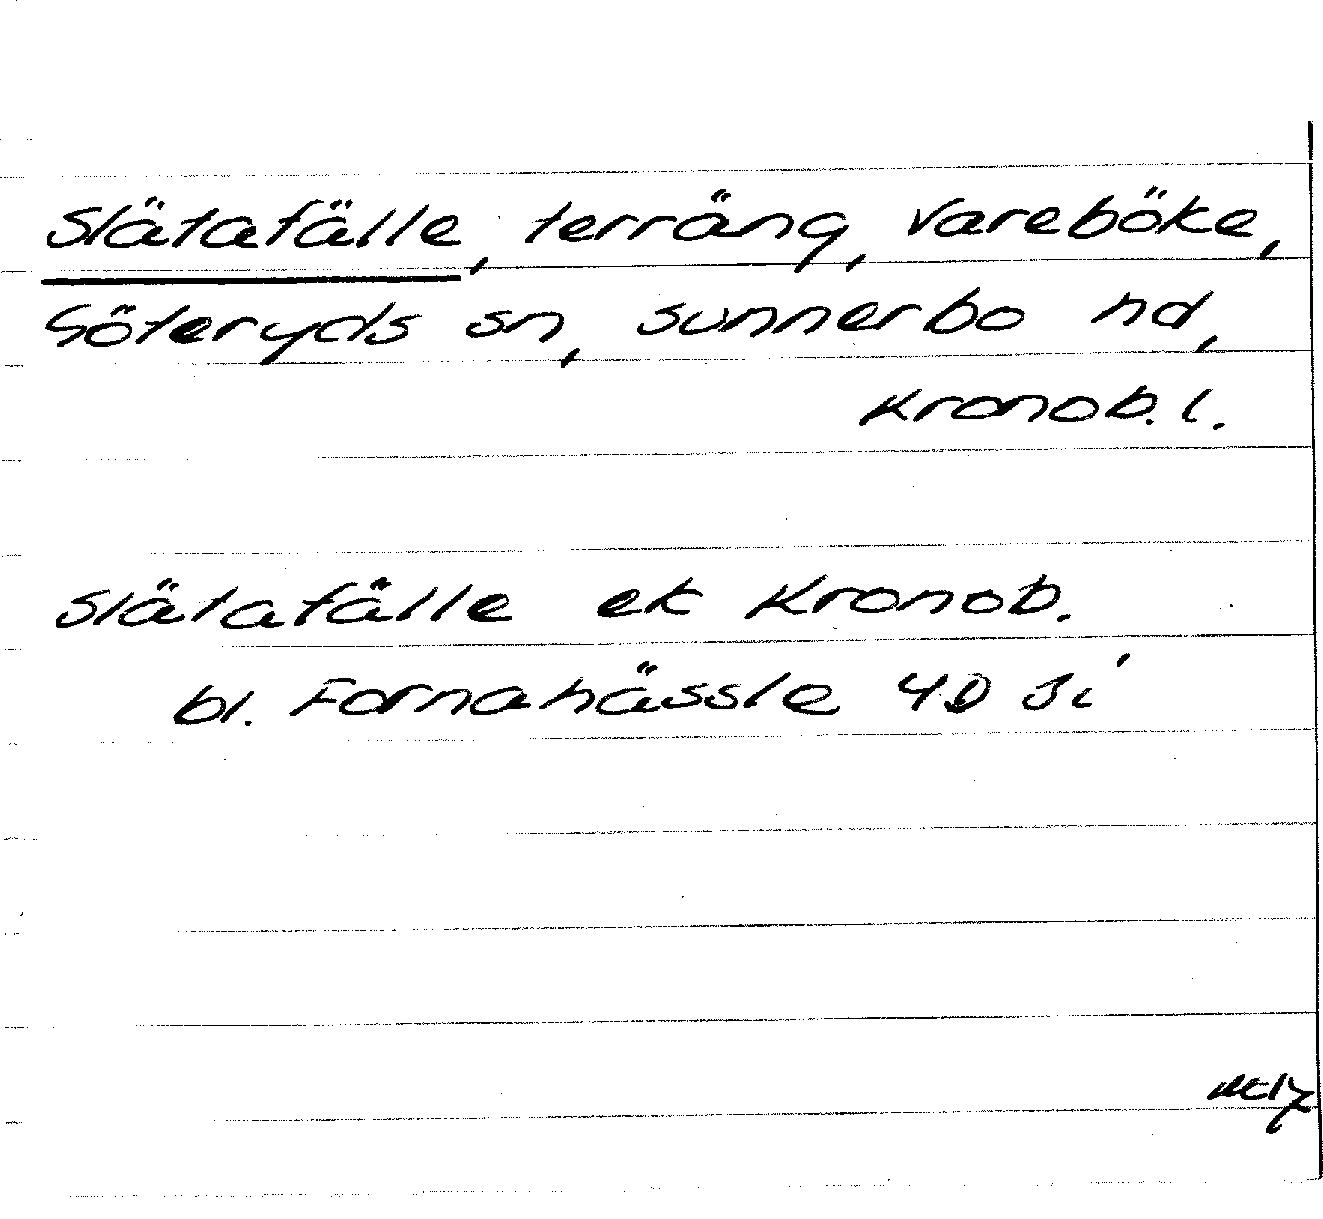 Slätafälle, terräng, Vareböke,
Göteryds sn, Sunnerbo hd,
Kronob. l.
Slätafälle ek Kronob.
bl. Fornahässle 4D 3i